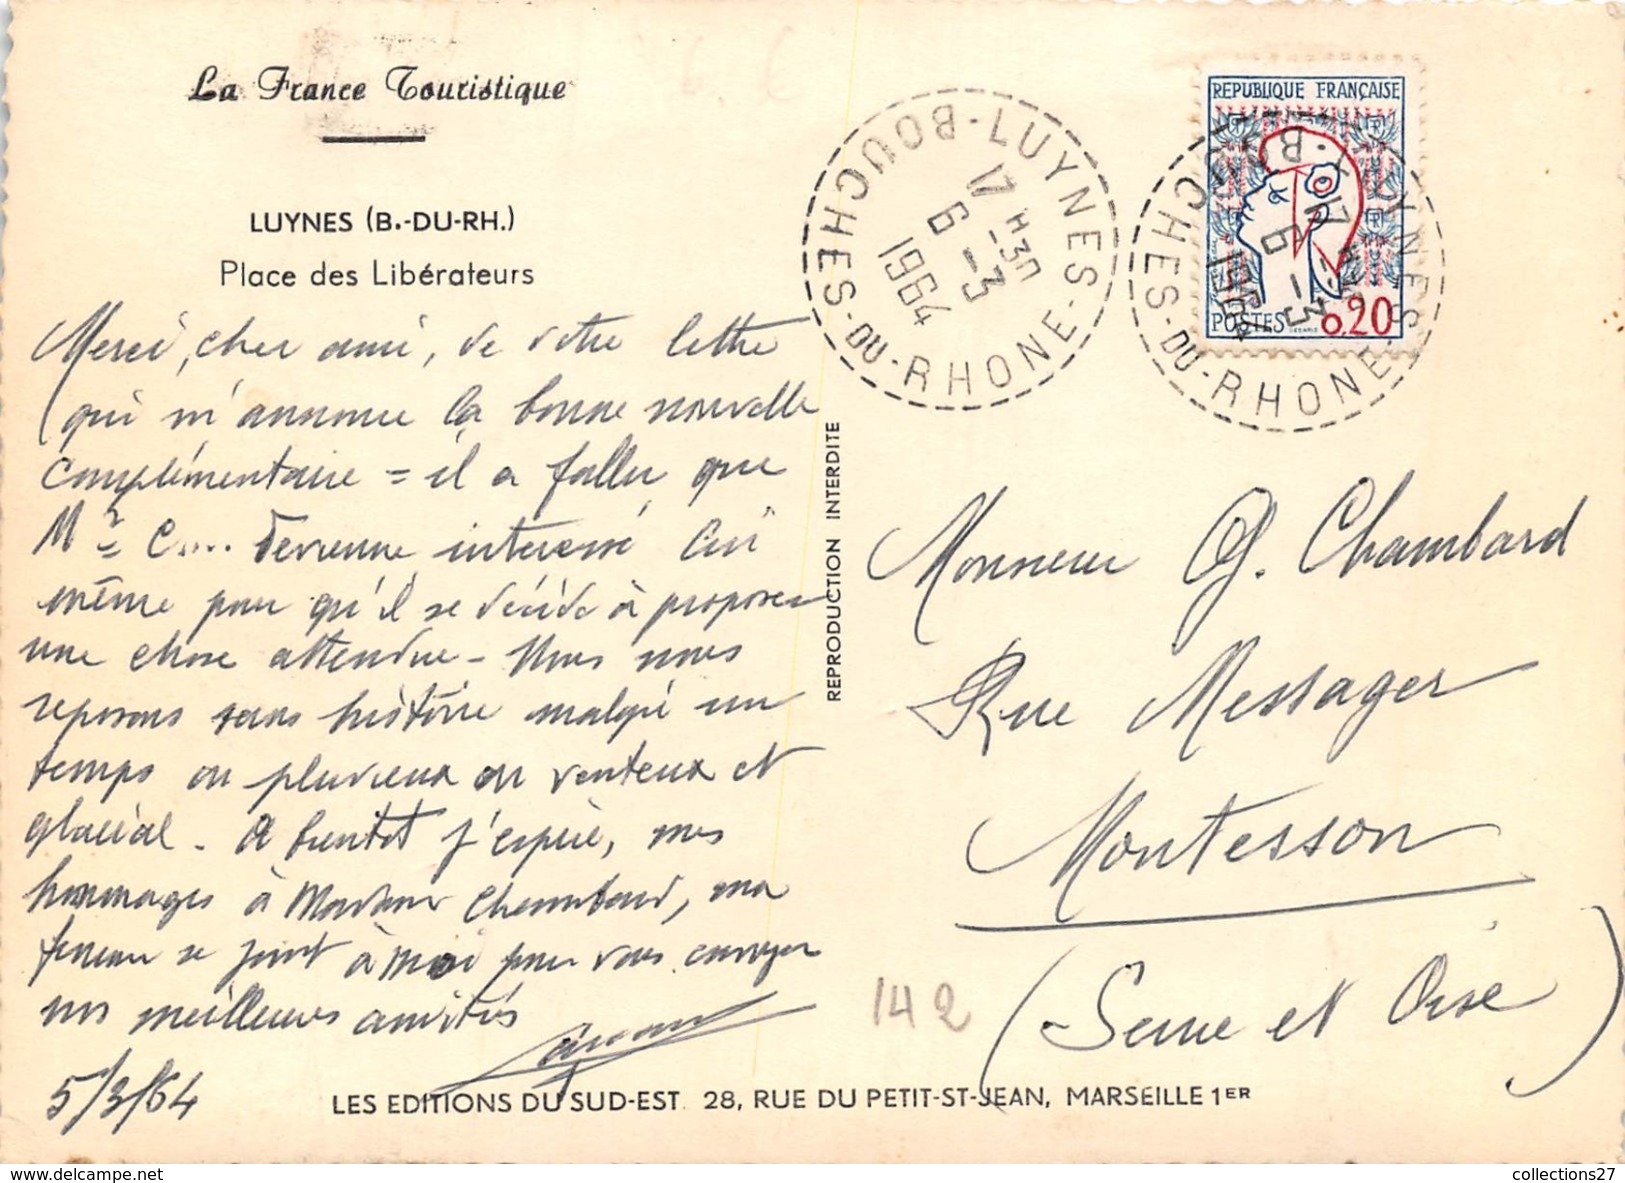 La France Touristique
LUYNES (B.-DU-RH.)
Place des Libérateurs
Merci, cher ami, de votre lettre
qui m'annonce la bonne nouvelle
complémentaire = il a fallu que
Mr C.... devienne intéressé lui
même pour qu'il se décide à proposer
une chose attendue - Nous nous
reposons sans histoire malgré un
temps ou pluvieux ou venteux et
glacial - A bientôt j'espère, mes
hommages à Madame Chambard, ma
femme se joint à moi pour vous envoyer
nos meilleures amitiés
5/3/64
REPRODUCTION INTERDITE
LUYNES - BOUCHES-DU-RHONE
17 H 30
6 -3
1964
REPUBLIQUE FRANÇAISE
POSTES 0,20
LUYNES - BOUCHES-DU-RHONE
17 H 30
6 -3
1964
Monsieur G. Chambard
Rue Messager
Montesson
(Seine et Oise)
142
LES EDITIONS DU SUD-EST. 28, RUE DU PETIT-ST-JEAN, MARSEILLE 1ER
collections27